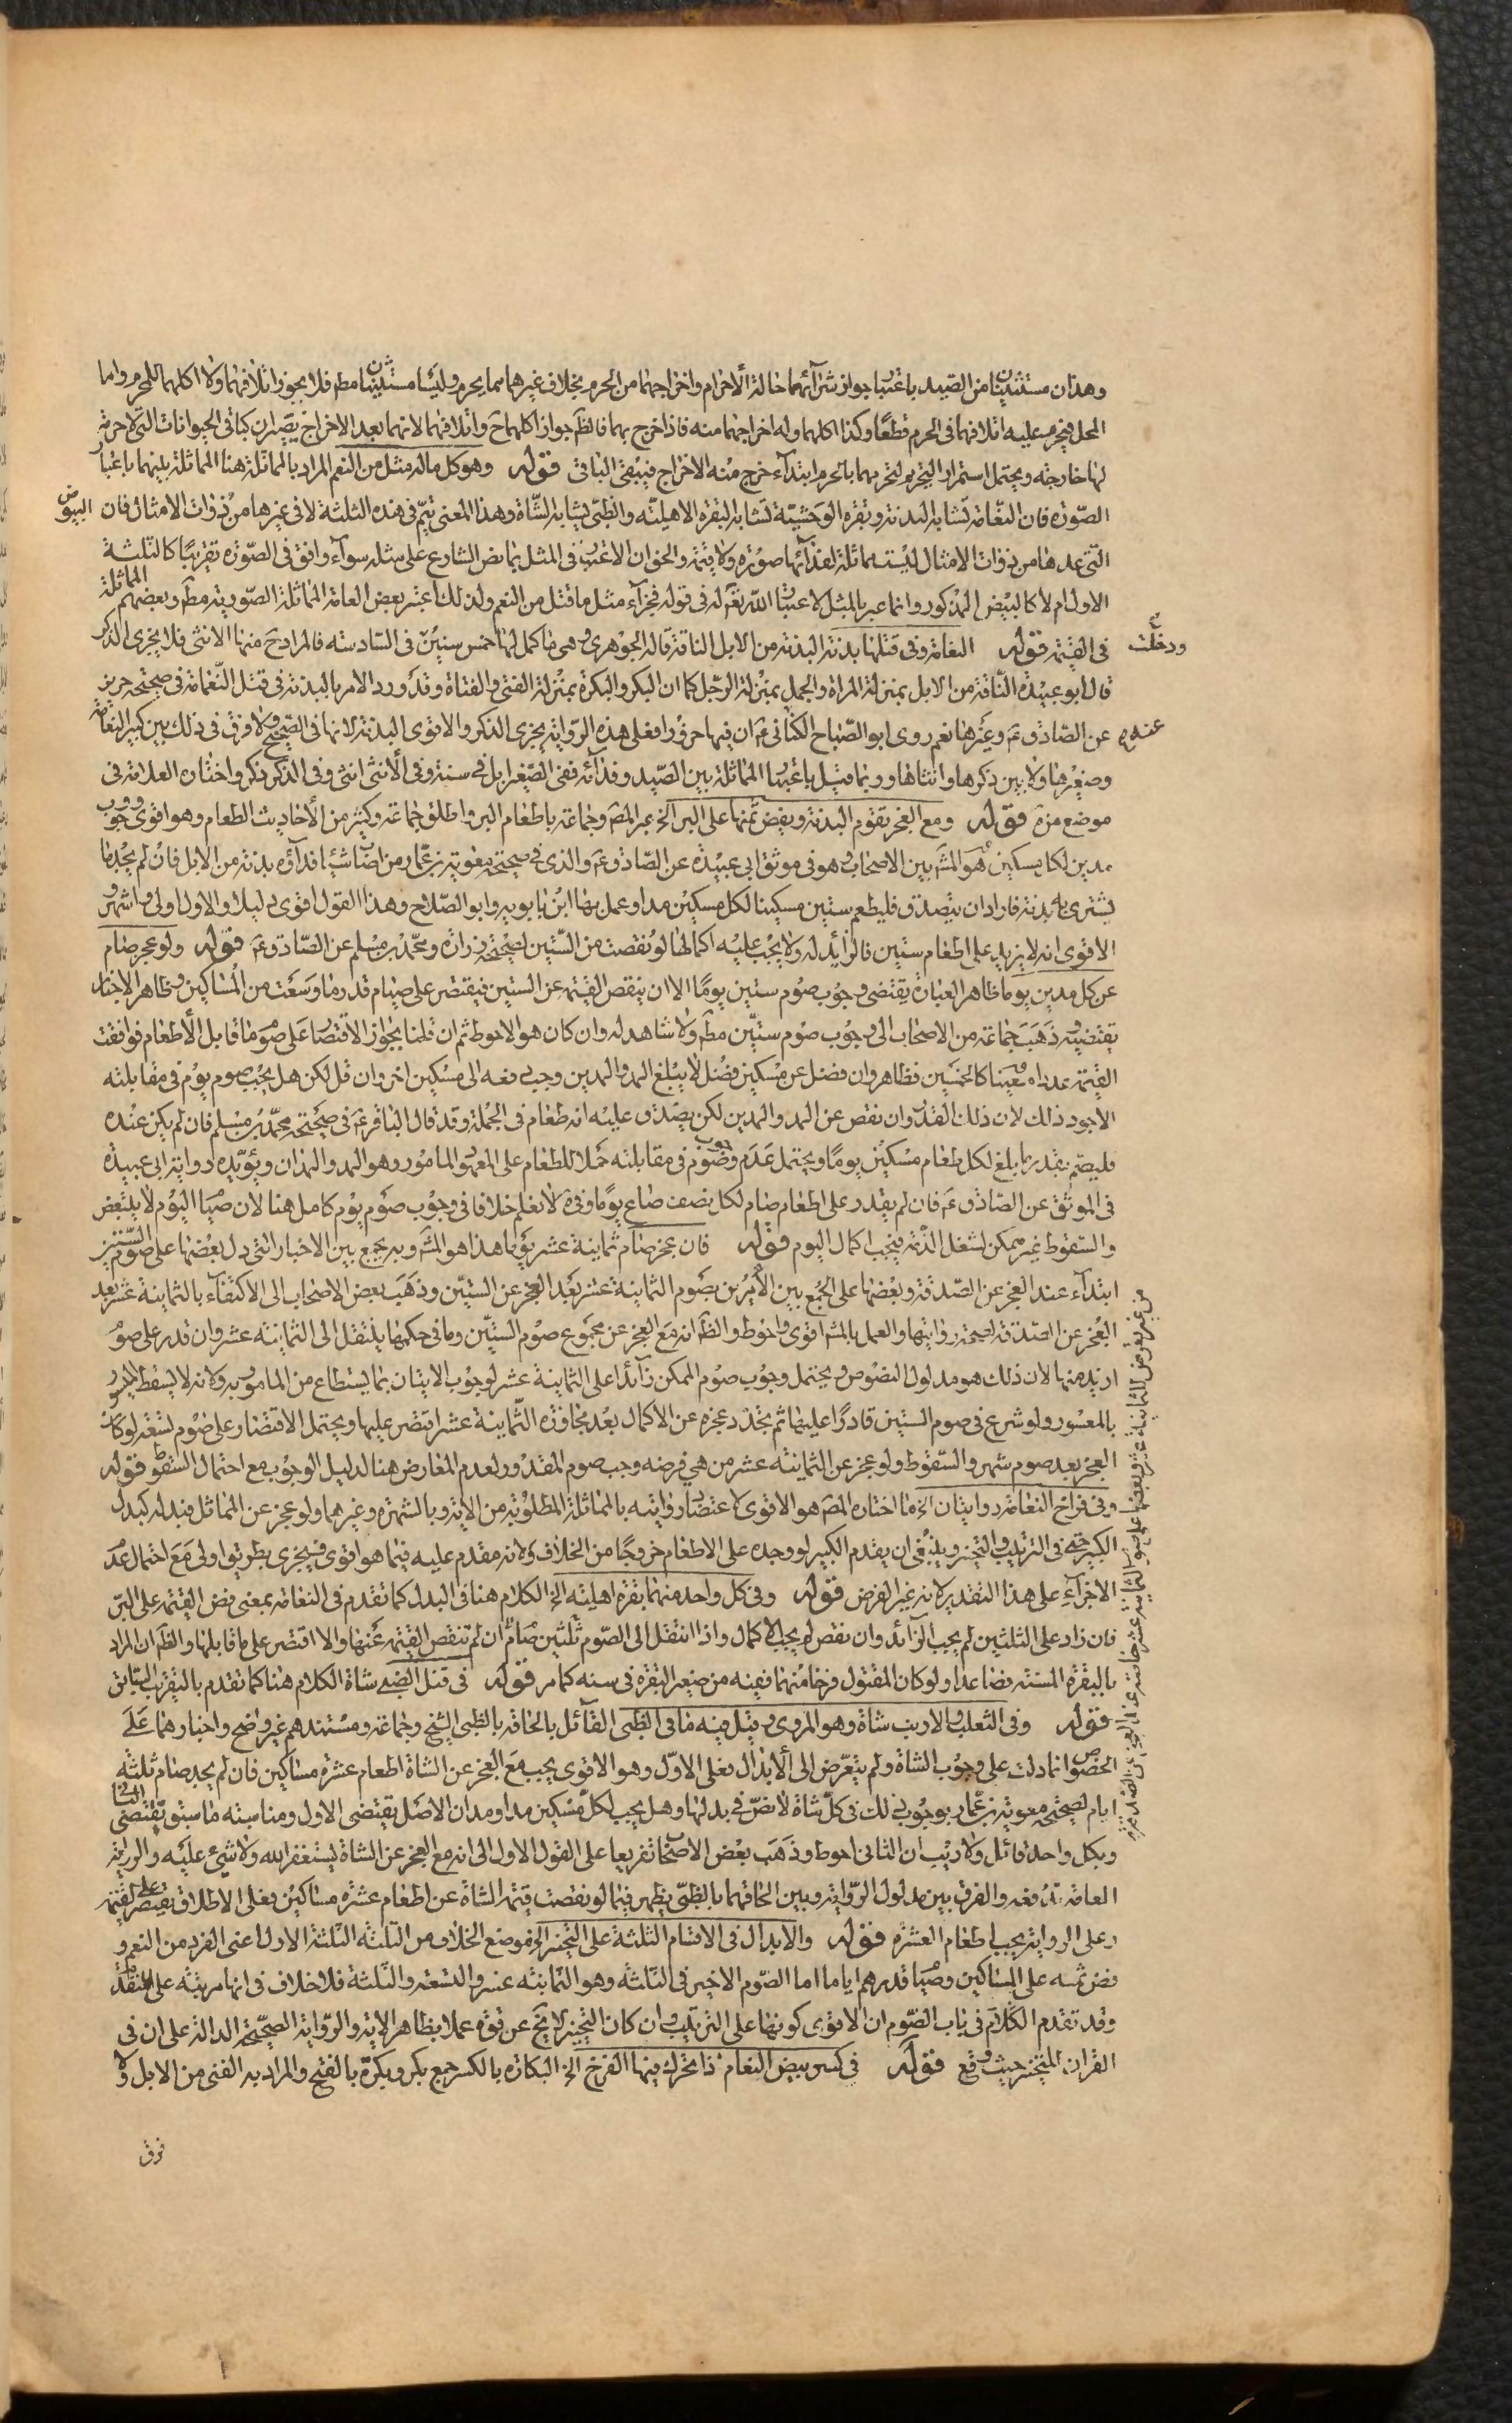 وهذان مستثنيان من الصيد باعتبار جواز شرائهما حالة الاحرام واخراجهما من الحرم بخلاف غيرهما مما يحرم وليسا مستثنيين مط فلا يجوز اتلافهما ولا اكلهما للمحرم واما
المحل فيحرم عليه اتلافهما في الحرم قطعا وكذا اكلهما وله اخراجهما منه فاذا خرج بهما فالظ جواز اكلهما ح واتلافهما لانهما بعد الاخراج يصيران كباقي الحيوانات التي لا حرمة
لها خارجه ويحتمل استمرار التحريم لتحريمهما بالحرم ابتداء خرج منه الاخراج فيبقى الباقي قوله وهو كل ماله مثل من النعم المراد بالمماثلة هنا المماثلة بينهما باعتبار
الصورة فان النعامة تشابه البدنة وبقرة الوحشية تشابه البقرة الاهلية والظبي يشابه الشاة وهذا المعنى يتم في هذه الثلثة لا في غيرها من ذوات الامثال فان البيوض
التي عدها من ذوات الامثال ليست مماثلة لفدائها صورة ولا قيمة والحق ان الاعتبار في المثل بما نص الشارع على مثله سواء وافق في الصورة تقريبا كالثلثة
الاول ام لا كالبيض المذكور وانما عبر بالمثل لاعتبار الله تعم له في قوله فجزاء مثل ما قتل من النعم ولذلك اعتبر بعض العامة المماثلة الصورية مط وبعضهم المماثلة
في القيمة قوله النعامة وفي قتلها بدنة البدنة من الابل الناقة قاله الجوهري وهي ما كمل لها خمس سنين ودخلت في السادسة فالمراد ح منها الانثى فلا يجزي الذكر
قال ابو عبيدة الناقة من الابل بمنزلة المراة والجمل بمنزلة الرجل كما ان البكر والبكرة بمنزلة الفتى والفتاة وقد ورد الامر بالبدنة في قتل النعامة في صحيحة حريز
عن الصادق ع وغيرها نعم روى ابو الصباح الكناني عنه ع ان فيها جزورا فعلى هذه الرواية يجزي الذكر والاقوى البدنة لانها في الصحيح ولا فرق في ذلك بين كبير النعامة
وصغيرها ولا بين ذكرها وانثاها وربما قيل باعتبار المماثلة بين الصيد وفدائه ففي الصغير ابل في سنه وفي الانثى انثى وفي الذكر ذكر واختاره العلامة في
موضع مزة قوله ومع العجز يقوم البدنة ويفض ثمنها على البر الخ عبر المص وجماعة باطعام البر واطلق جماعة وكثير من الاحاديث الطعام وهو اقوى ووجوب
مدين لكل مسكين هو المش بين الاصحاب وهو في موثق ابي عبيدة عن الصادق ع والذي في صحيحة معوية بن عمار من اصاب شيئا فداؤه بدنة من الابل فان لم يجد ما
يشتري به بدنة فاراد ان يتصدق فليطعم ستين مسكينا لكل مسكين مدا وعمل بها ابن بابويه وابو الصلاح وهذا القول اقوى دليلا والاول اولى واشهر و
الاقوى انه لا يزيد على اطعام ستين فالزائد له ولا يجب عليه اكمالها لو نقصت من الستين لصحيحة زرارة ومحمد بن مسلم عن الصادق ع قوله ولو عجز صام
عن كل مدين يوما ظاهر العبارة يقتضي وجوب صوم ستين يوما الا ان ينقص القيمة عن الستين فيقتصر على صيام قدر ما وسعت من المساكين وظاهر الاخبار
يقتضيه وذهب جماعة من الاصحاب الى وجوب صوم ستين مط ولا شاهد له وان كان هو الاحوط ثم ان قلنا بجواز الاقتصار على صوم ما قابل الاطعام فوافقت
القيمة عددا معينا كالخمسين فظاهر وان فضل عن مسكين فضل لا يبلغ المد والمدين وجب دفعه الى مسكين اخر وان قل لكن هل يجب صوم يوم في مقابلته
الاجود ذلك لان ذلك القدر وان نقص عن المد والمدين لكن يصدق عليه انه طعام في الجملة وقد قال الباقر ع في صحيحة محمد بن مسلم فان لم يكن عنده
فليصم بقدر ما بلغ لكل طعام مسكين يوما ويحتمل عدم وجوب صوم في مقابلته حملا للطعام على المعهود المامور وهو المد والمدان ويؤيده رواية ابي عبيدة
في الموثق عن الصادق ع فان لم يقدر على اطعام صام لكل نصف صاع يوما وفي ة لا نعلم خلافا في وجوب صوم يوم كامل هنا لان صيام اليوم لا يتبعض
والسقوط غير ممكن لشغل الذمة فيجب اكمال اليوم قوله فان عجز صام ثمانية عشر يوما هذا هو المش وبه يجمع بين الاخبار التي دل بعضها على صوم الستين
ابتداء عند العجز عن الصدقة وبعضها على الجمع بين الامرين بصوم الثمانية عشر بعد العجز عن الستين وذهب بعض الاصحاب الى الاكتفاء بالثمانية عشر بعد
العجز عن الصدقة لصحة روايتها والعمل بالمش اقوى واحوط والظ انه مع العجز عن مجموع صوم الستين وما في حكمها ينتقل الى الثمانية عشر وان قدر على صوم
ازيد منها لان ذلك هو مدلول النصوص ويحتمل وجوب صوم الممكن زائدا على الثمانية عشر لوجوب الاتيان بما يستطاع من المامور به ولانه لا يسقط الميسور
بالمعسور ولو شرع في صوم الستين قادرا عليها ثم تجدد عجزه عن الاكمال بعد مجاوزه الثمانية عشر اقتصر عليها ويحتمل الاقتصار على صوم تسعة لو كان
العجز بعد صوم شهر والسقوط ولو عجز عن الثمانية عشر من هي فرضه وجب صوم المقدور لعدم المعارض هنا لدليل الوجوب مع احتمال السقوط قوله
وفي فراخ النعامة روايتان الخ ما اختاره المص هو الاقوى لاعتضاد روايته بالمماثلة المطلوبة من الاية وبالشهرة وغيرهما ولو عجز عن المماثل فبدله كبدل
الكبير حتى في الترتيب والتخيير وينبغي ان يقدم الكبير لو وجده على الاطعام خروجا من الخلاف ولانه مقدم عليه فيما هو اقوى فيجزي بطريق اولى مع احتمال عدم
الاجزاء على هذا التقدير لانه غير الفرض قوله وفي كل واحد منهما بقرة اهلية الخ الكلام هنا في البدل كما تقدم في النعامة بمعنى فض القيمة على البر
فان زاد على الثلثين لم يجب الزائد وان نقص لم يجب الاكمال واذا انتقل الى الصوم ثلثين صام ان لم تنقص القيمة عنها والا اقتصر على ما قابلها والظ ان المراد
بالبقرة المسنة فصاعدا ولو كان المقتول فرخا منهما ففيه من صغير البقرة في سنه كما مر قوله في قتل الضبي شاة الكلام هنا كما تقدم بالتقريب السابق
قوله وفي الثعلب والارنب شاة وهو المروي وقيل فيه ما في الظبي القائل بالحاقه بالظبي الشيخ وجماعة ومستندهم غير واضح واخبارهما على
الخصوص انما دلت على وجوب الشاة ولم يتعرض الى الابدال فعلى الاول وهو الاقوى يجب مع العجز عن الشاة اطعام عشرة مساكين فان لم يجد صام ثلثة
ايام لصحيحة معوية بن عمار بوجوب ذلك في كل شاة لا نص في بدلها وهل يجب لكل مسكين مد او مدان الاصل يقتضي الاول ومناسبته ما سبق يقتضي الثاني
وبكل واحد قائل ولا ريب ان الثاني احوط وذهب بعض الاصحاب تفريعا على القول الاول الى انه مع العجز عن الشاة يستغفر الله ولا شيء عليه والرواية
العامة تدفعه والفرق بين مدلول الرواية وبين الحاقهما بالظبي يظهر فيما لو نقصت قيمة الشاة عن اطعام عشرة مساكين فعلى الاطلاق يقتصر على القيمة
وعلى الرواية يجب اطعام العشرة قوله والابدال في الاقسام الثلثة على التخيير الخ موضع الخلاف من الثلثة الثلثة الاول اعني الفرد من النعم و
فض ثمنه على المساكين وصيام قدرهم اياما اما الصوم الاخير في الثلثة وهو الثمانية عشر والتسعة والثلثة فلا خلاف في انها مرتبة على المتقدم
وقد تقدم الكلام في باب الصوم ان الاقوى كونها على الترتيب وان كان التخيير لا يخ عن قوة عملا بظاهر الاية والرواية الصحيحة الدالة على ان في
القران للتخيير حيث وقع قوله في كسر بيض النعام اذا تحرك فيها الفرخ الخ البكارة بالكسر جمع بكر وبكرة بالفتح والمراد به الفتى من الابل ولا
فرق